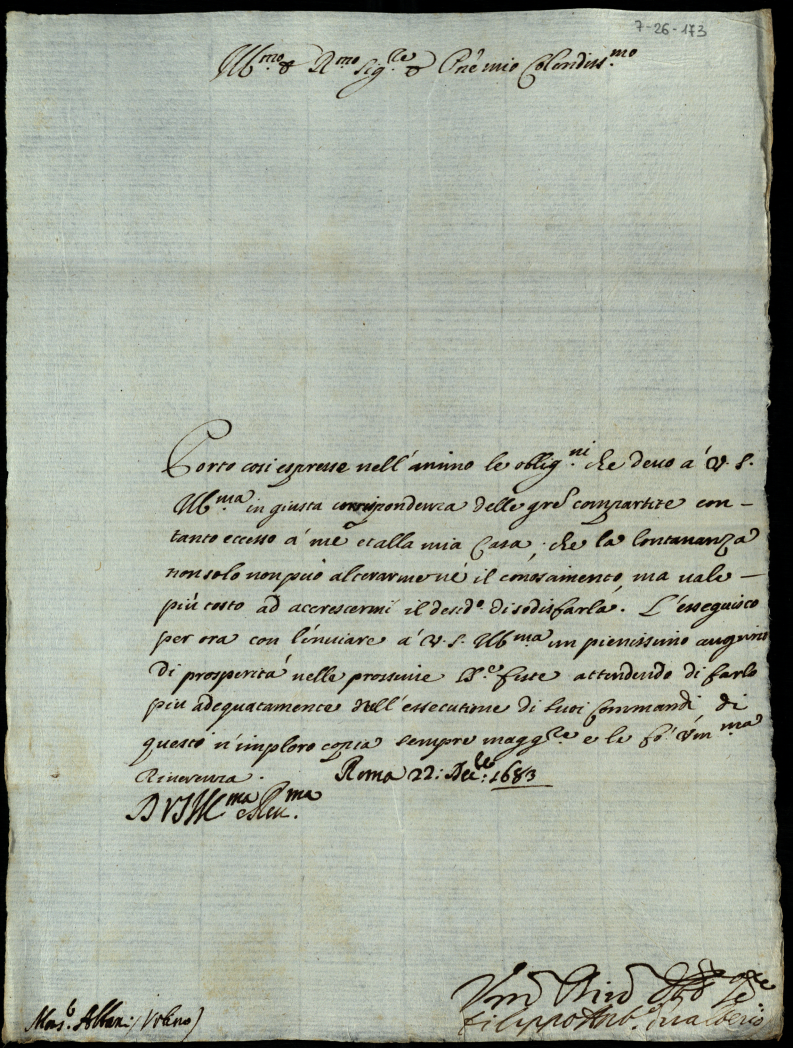 7-26-173
Ill.mo & R.mo Sig.re & P.ne mio Colendiss.mo
Porto così espresse nell'animo le oblig.ni che devo à V. S.
Ill.ma in giusta corrispondenza delle gre compartite con
tanto eccesso à me et alla mia Casa, che la lontananza
non solo non può alterarme né il conoscimento, ma vale
più tosto ad accrescermi il desid.o di sodisfarla. L'esseguisco
per ora con l'inviare à V. S. Ill.ma un pienissimo augurio
di prosperità nelle prossime S.e feste attendendo di farlo
più adequatamente nell'essecutione di suoi Commandi di
questi n'imploro copia sempre magg.re e le fò um.ma
Riverenza. Roma 22: Dec.re: 1683
D V S Ill.ma e Reu.ma
Mons.r Alban: / Urbino)
Filippo Ant.o Gualterio